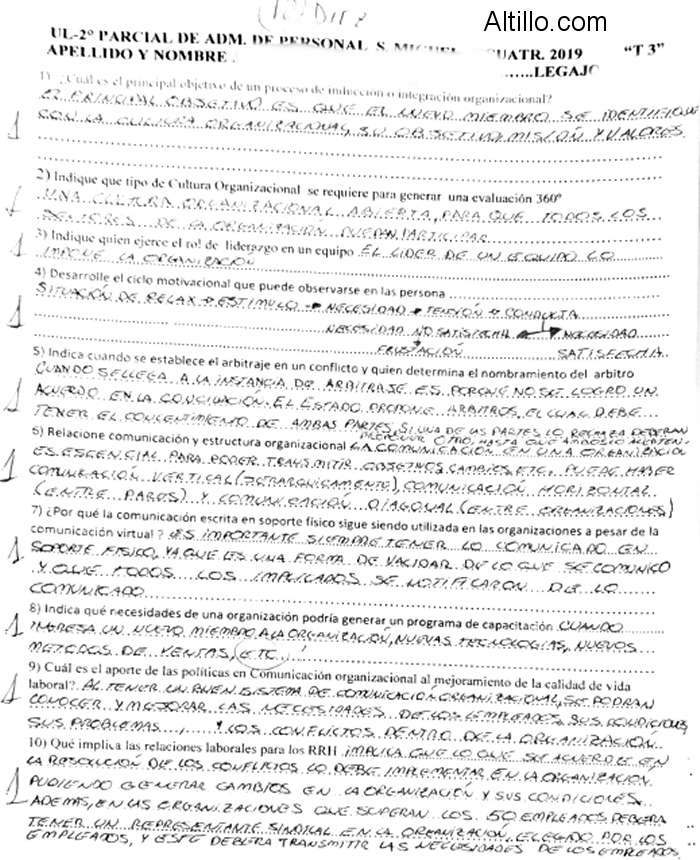 Altillo.com
(10) DIEZ
UL-2º PARCIAL DE ADM. DE PERSONAL S. MIGUEL CUATR. 2019 "T 3"
APELLIDO Y NOMBRE : ......LEGAJO
1) ¿Cuál es el principal objetivo de un proceso de inducción o integración organizacional?
EL PRINCIPAL OBJETIVO ES QUE EL NUEVO MIEMBRO SE IDENTIFIQUE
1 CON LA CULTURA ORGANIZACIONAL, SU OBJETIVO, MISIÓN Y VALORES.
2) Indique que tipo de Cultura Organizacional se requiere para generar una evaluación 360º
1 UNA CULTURA ORGANIZACIONAL ABIERTA, PARA QUE TODOS LOS
SECTORES DE LA ORGANIZACION PUEDAN PARTICIPAR
3) Indique quien ejerce el rol de liderazgo en un equipo EL LIDER DE UN EQUIPO LO
IMPONE LA ORGANIZACIÓN
4) Desarrolle el ciclo motivacional que puede observarse en las persona
1 SITUACIÓN DE RELAX → ESTIMULO → NECESIDAD → TENSIÓN → CONDUCTA
NECESIDAD NO SATISFECHA NECESIDAD
FRUSTACIÓN SATISFECHA.
5) Indica cuando se establece el arbitraje en un conflicto y quien determina el nombramiento del arbitro
CUANDO SE LLEGA A LA INSTANCIA DE ARBITRAJE ES PORQUE NO SE LOGRO UN
1 ACUERDO EN LA CONCILIACIÓN. EL ESTADO PROPONE ARBITROS, EL CUAL DEBE
TENER EL CONCENTIMIENTO DE AMBAS PARTES, SI UNA DE LAS PARTES LO RECHAZA DEBERAN
PROPONER OTRO, HASTA QUE AMBOS LO ACEPTEN.
6) Relacione comunicación y estructura organizacional LA COMUNICACIÓN EN UNA ORGANIZACIÓN
1 ES ESCENCIAL PARA PODER TRANSMITIR OBJETIVOS, CAMBIOS, ETC. PUEDE HABER
COMUNICACIÓN VERTICAL (JERARQUICAMENTE), COMUNICACIÓN HORIZONTAL
(ENTRE PARES) Y COMUNICACIÓN DIAGONAL (ENTRE ORGANIZACIONES)
7) ¿Por qué la comunicación escrita en soporte físico sigue siendo utilizada en las organizaciones a pesar de la
comunicación virtual ? ES IMPORTANTE SIEMPRE TENER LO COMUNICADO EN
1 SOPORTE FISICO, YA QUE ES UNA FORMA DE VALIDAR DE LO QUE SE COMUNICO
Y QUE TODOS LOS IMPLICADOS SE NOTIFICARON DE LO
COMUNICADO
8) Indica qué necesidades de una organización podría generar un programa de capacitación CUANDO
1 INGRESA UN NUEVO MIEMBRO A LA ORGANIZACIÓN, NUEVAS TECNOLOGIAS, NUEVOS
METODOS DE VENTAS, ETC.
9) Cuál es el aporte de las políticas en Comunicación organizacional al mejoramiento de la calidad de vida
laboral? AL TENER UN BUEN SISTEMA DE COMUNICACIÓN ORGANIZACIONAL, SE PODRAN
1 CONOCER Y MEJORAR LAS NECESIDADES DE LOS EMPLEADOS, SUS CONDICIONES,
SUS PROBLEMAS, Y LOS CONFLICTOS DENTRO DE LA ORGANIZACIÓN.
10) Qué implica las relaciones laborales para los RRHH IMPLICA QUE LO QUE SE ACUERDE EN
LA RESOLUCIÓN DE LOS CONFLICTOS LO DEBE IMPLEMENTAR EN LA ORGANIZACION.
1 PUDIENDO GENERAR CAMBIOS EN LA ORGANIZACIÓN Y SUS CONDICIONES.
ADEMAS, EN LAS ORGANIZACIONES QUE SUPERAN LOS 50 EMPLEADOS DEBERA
TENER UN REPRESENTANTE SINDICAL EN LA ORGANIZACION, ELEGIDO POR LOS
EMPLEADOS, Y ESTE DEBERA TRANSMITIR LAS NECESIDADES DE LOS EMPLEADOS.